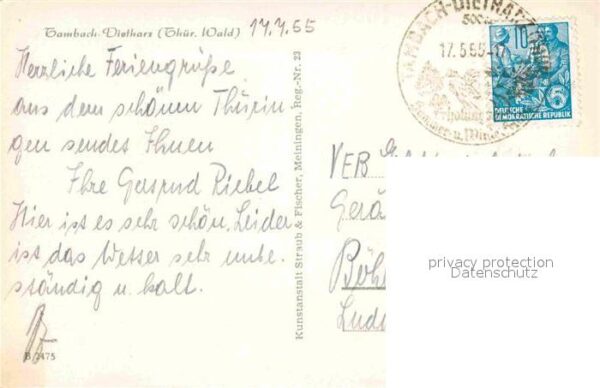 Tambach-Dietharz (Thür. Wald) 17.7.65
Herzliche Feriengrüße
aus dem schönen Thürin-
gen sendes Ihnen
Ihre Riebel
Hier ist es sehr schön. Leider
ist das Wetter sehr unbe-
ständig u. kalt.
B 2475
Kunstanstalt Straub & Fischer, Meiningen, Reg.-Nr. 23
TAMBACH-DIETHARZ
17.5.65-17
Erholung
Sommer- u.
10
5
DEUTSCHE
DEMOKRATISCHE REPUBLIK
VEB
Gerä
Böh
Luds
privacy protection
Datenschutz